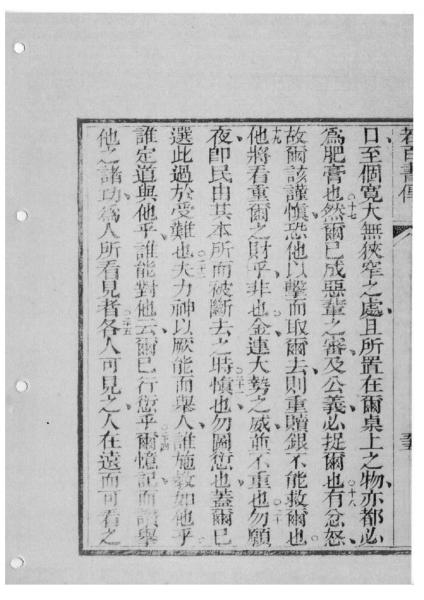 口至個寬大無狹窄之處且所置在爾桌上之物亦都必
爲肥膏也○十七然爾已成惡輩之審及公義必捉爾也○十八有忿怒
故爾該謹慎恐他以擊而取爾去則重贖銀不能救爾也
○十九他將看重爾之財乎非也金連大勢之威並不重也○二十勿願
夜卽民由其本所而被斷去之時○二十一愼也勿圖愆也蓋爾已
選此過於受難也○二十二夫力神以厥能而舉人誰施敎如他乎
○二十三誰定道與他乎誰能對他云爾已行愆乎○二十四爾憶記而讚舉
他之諸功爲人所看見者○二十五各人可見之人在遠而可看之